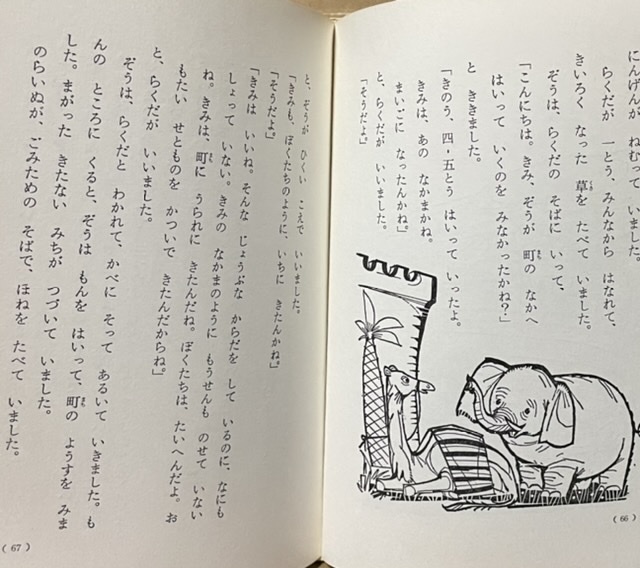 にんげんが ねむって いました。
らくだが 一とう、みんなから はなれて、
きいろく なった 草を たべて いました。
ぞうは、らくだの そばに いって、
「こんにちは。きみ、ぞうが 町の なかへ
はいって いくのを みなかったかね?」
と ききました。
「きのう、四-五とう はいって いったよ。
きみは、あの なかまかね。
まいごに なったんかね。」
と、らくだが いいました。
「そうだよ。」
(66)
と、ぞうが ひくい こえで いいました。
「きみも、ぼくたちのように、いちに きたんかね。」
「そうだよ。」
「きみは いいね。そんな じょうぶな からだを して いるのに、なにも
しょって いない。きみの なかまのように もうせんも のせて いない
ね。きみは、町に うられに きたんだね。ぼくたちは、たいへんだよ。お
もたい せとものを かついで きたんだからね。」
と、らくだが いいました。
ぞうは、らくだと わかれて、かべに そって あるいて いきました。も
んの ところに くると、ぞうは もんを はいって、町の ようすを みま
した。まがった きたない みちが つづいて いました。
のらいぬが、ごみための そばで、ほねを たべて いました。
(67)